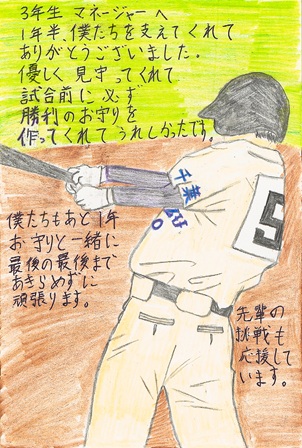 3年生 マネージャーへ
1年半、僕たちを支えてくれて
ありがとうございました。
優しく見守ってくれて
試合前に必ず
勝利のお守りを
作ってくれてうれしかったです。
千葉
9
僕たちもあと1年
お守りと一緒に
最後の最後まで
あきらめずに
頑張ります。
先輩の
挑戦も
応援して
います。